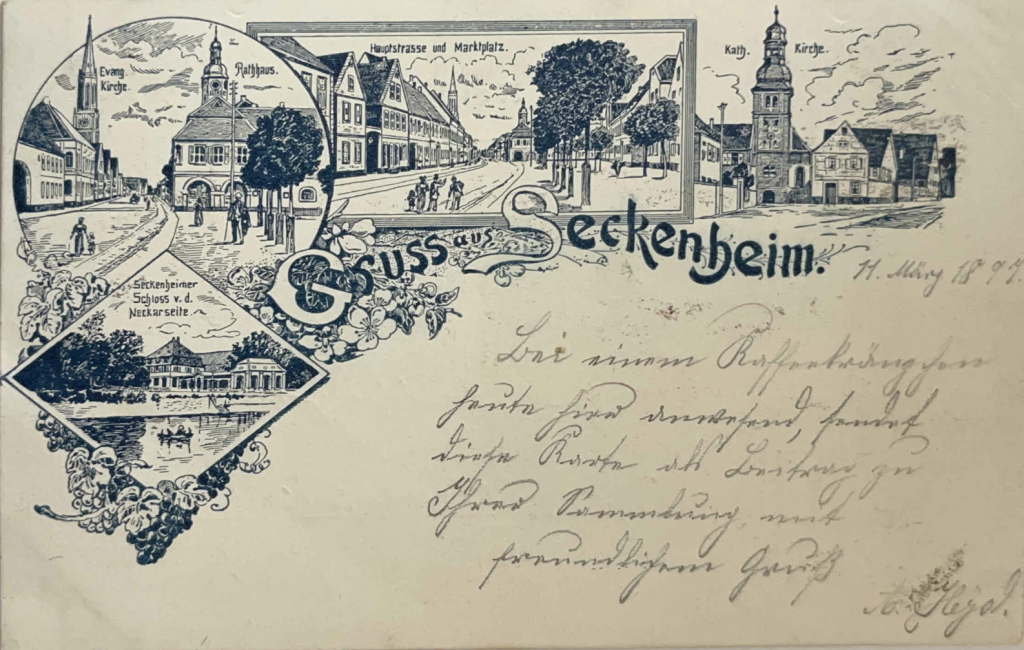 Evang.
Kirche.
Rathhaus.
Hauptstrasse und Marktplatz.
Kath. Kirche.
Gruss aus Seckenheim.
Seckenheimer
Schloss v. d.
Neckarseite.
11. März 1897.
Bei einem Kaffeekränzchen
heute hier anwesend, sendet
diese Karte als Beitrag zu
Ihrer Sammlung, mit
freundlichem Gruß
Heyd.